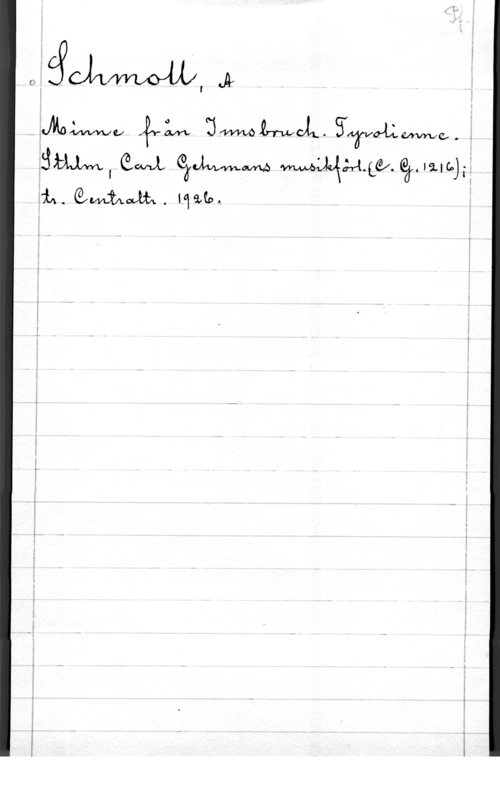 Pf
Schmoll, A
Minne från Innsbruck. Tyrolienne.
Sthlm, Carl Gehrmans musikförl.(C. G. 1216);
tr. Centraltr. 1926.